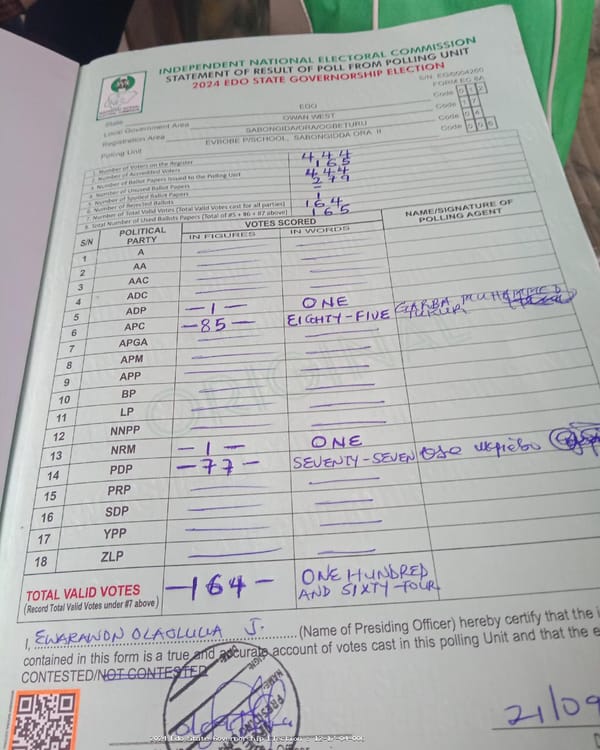 INDEPENDENT NATIONAL ELECTORAL COMMISSION
STATEMENT OF RESULT OF POLL FROM POLLING UNIT
2024 EDO STATE GOVERNORSHIP ELECTION
S/N EG/0004260
FORM EC 8A
State EDO Code 012
Local Government Area OWAN WEST Code 17
Registration Area SABONGIDA/ORA/OGBETURU Code 04
Polling Unit EVBOBE P/SCHOOL, SABONGIDDA ORA II Code
1. Number of Voters on the Register 444
2. Number of Accredited Voters 165
3. Number of Ballot Papers Issued to the Polling Unit 444
4. Number of Unused Ballot Papers 279
5. Number of Spoiled Ballot Papers –
6. Number of Rejected Ballots 1
7. Number of Total Valid Votes (Total Valid Votes cast for all parties) 164
8. Total Number of Used Ballots Papers (Total of #5 + #6 + #7 above) 165
S/N POLITICAL PARTY VOTES SCORED NAME/SIGNATURE OF POLLING AGENT
IN FIGURES IN WORDS
1 A
2 AA
3 AAC
4 ADC
5 ADP –1– ONE
6 APC –85– EIGHTY-FIVE GARBA MUHAMMED
7 APGA
8 APM
9 APP
10 BP
11 LP
12 NNPP
13 NRM –1– ONE
14 PDP –77– SEVENTY-SEVEN
15 PRP
16 SDP
17 YPP
18 ZLP
TOTAL VALID VOTES –164– ONE HUNDRED AND SIXTY-FOUR
(Record Total Valid Votes under #7 above)
I, J. (Name of Presiding Officer) hereby certify that the
contained in this form is a true and accurate account of votes cast in this polling Unit and that the
CONTESTED/NOT CONTESTED
21/09
ORIGINAL
2024 Edo State Governorship Election - 12-17-04-006